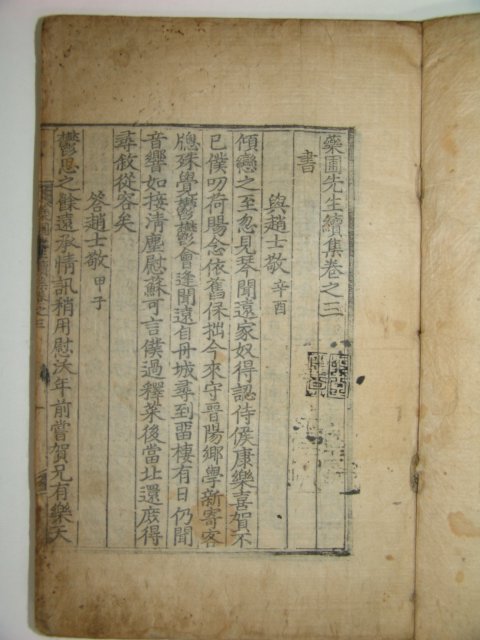 藥圃先生續集卷之三
書
與趙士敬 辛酉
傾戀之至忽見琴聞遠家奴得認侍候康樂喜賀不
已僕叨荷賜念依舊保拙今來守晉陽鄉學新寄客
牕殊覺鬱鬱會逢聞遠自丹城尋到留棲有日仍聞
音響如接清塵慰蘇可言僕過釋菜後當北還庻得
尋敘從容矣
答趙士敬 甲子
鬱悒之餘遠承情訊稍用慰沃年前嘗賀兄有樂天